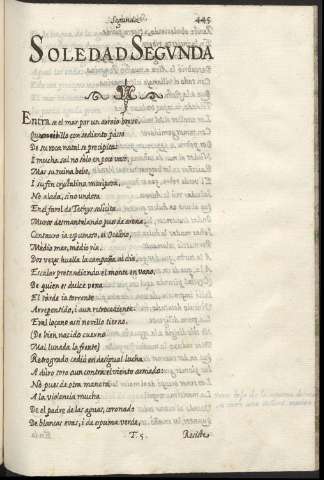 Segunda.
445
SOLEDAD SEGVNDA
Entrase el mar por un arroio breve,
Que a recibillo con sediento passo
De su roca natal se precipita;
I mucha sal no solo en poco vaso,
Mas su ruina bebe,
I su fin, crystalina mariposa,
No alada, sino undosa
En el farol de Tethys solicita.
Muros desmantelando pues de arena,
Centauro ia espumoso, el Oceano,
Medio mar, medio ria,
Dos vezes huella la campaña al dia,
Escalar pretendiendo el monte en vano,
De quien es dulce vena
El tarde ia torrente
Arrepentido, i aun retrocediente:
Eral loçano assi novillo tierno,
(De bien nacido cuerno
Mal lunada la frente)
Retrogrado cedió en desigual lucha
A duro toro aun contra el viento armado:
No pues de otra manera
A la violencia mucha
De el padre de las aguas, coronado
De blancas ovas, i de espuma verde,
T. 5.
Resiste